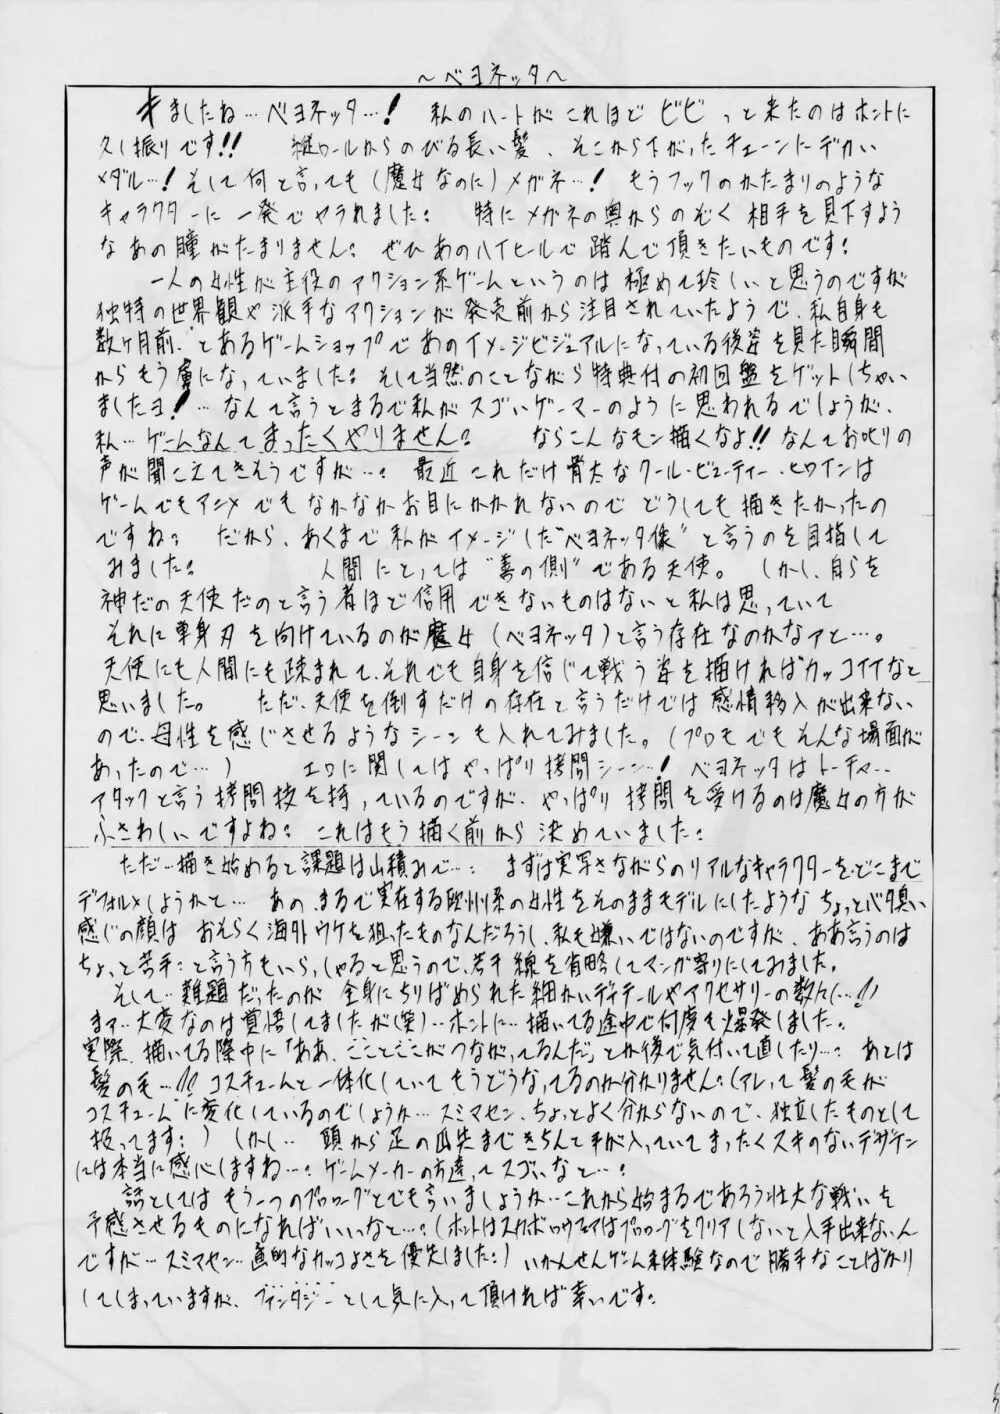 ～ベヨネッタ～
キましたね…ベヨネッタ…! 私のハートがこれほど ビビ っと来たのはホントに
久し振りです!! 縦ロールからのびる長い髪、そこから下がったチェーンにデカい
メダル…! そして何と言っても(魔女なのに)メガネ…! もうフックのかたまりのような
キャラクターに一発でヤラれました: 特にメガネの奥からのぞく 相手を見下すよう
なあの瞳がたまりません: ぜひあのハイヒールで踏んで頂きたいものです:
一人の女性が主役のアクション系ゲームというのは極めて珍しいと思うのですが
独特の世界観や派手なアクションが発売前から注目されていたようで、私自身も
数ヶ月前、とあるゲームショップであのイメージビジュアルになっている後姿を見た瞬間
からもう虜になっていました: そして当然のことながら特典付の初回盤をゲットしちゃい
ましたヨ!…なんて言うとまるで私がスゴいゲーマーのように思われるでしょうが、
私…ゲームなんてまったくやりません: ならこんなモン描くなよ!!なんてお叱りの
声が聞こえてきそうですが…: 最近これだけ骨太なクール・ビューティー・ヒロインは
ゲームでもアニメでもなかなかお目にかかれないので どうしても描きたかったの
ですね: だから、あくまで私がイメージした"ベヨネッタ像"と言うのを目指して
みました: 人間にとっては"善の側"である天使。 しかし、自らを
神だの天使だのと言う者ほど信用できないものはないと私は思っていて
それに単身刃を向けているのが魔女(ベヨネッタ)と言う存在なのかなァと…。
天使にも人間にも疎まれて、それでも自身を信じて戦う姿を描ければカッコイイなと
思いました。 ただ、天使を倒すだけの存在と言うだけでは感情移入が出来ない
ので、母性を感じさせるようなシーンも入れてみました。(プロモでもそんな場面が
あったので…) エロに関してはやっぱり拷問シーン…! ベヨネッタはトーチャー・
アタックと言う拷問技を持っているのですが、やっぱり拷問を受けるのは魔女の方が
ふさわしいですよね: これはもう描く前から決めていました:
ただ…描き始めると課題は山積みで…: まずは実写さながらのリアルなキャラクターを、どこまで
デフォルメしようかと… あの、まるで実在する欧州系の女性をそのままモデルにしたような ちょっとバタ臭い
感じの顔は おそらく海外ウケを狙ったものなんだろうし、私も嫌いではないのですが、ああ言うのは
ちょっと苦手:と言う方もいらっしゃると思うので、若干線を省略してマンガ寄りにしてみました。
そして…難題だったのが 全身にちりばめられた細かいディテールやアクセサリーの数々…!!
まァ…大変なのは覚悟してましたが(笑)…ホントに…描いてる途中で何度も爆発しました。
実際、描いてる際中に「ああ、こことここがつながってるんだ」とか後で気付いて直したり…: あとは
髪の毛…!! コスチュームと一体化していてもうどうなってるのか分かりません:(アレって髪の毛が
コスチュームに変化しているのでしょうか…スミマセン、ちょっとよく分からないので、独立したものとして
扱ってます:) しかし… 頭から足の爪先まできちんと手が入っていてまったくスキのないデザイン
には本当に感心しますね…: ゲームメーカーの方達ってスゴいなと…:
話としてはもう一つのプロローグとでも言いましょうか…これから始まるであろう壮大な戦いを
予感させるものになればいいなと…:(ホントはスカボロウフェアはプロローグをクリアしないと入手出来ないん
ですが…スミマセン…画的なカッコよさを優先しました:) いかんせんゲーム未体験なので勝手なことばかり
してしまっていますが、ファンタジーとして気に入って頂ければ幸いです: